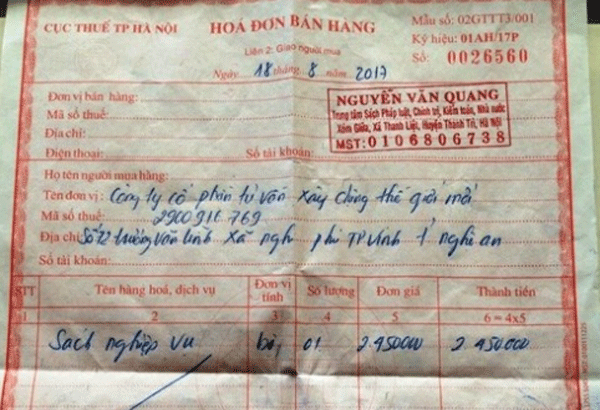 CỤC THUẾ TP HÀ NỘI
HOÁ ĐƠN BÁN HÀNG
Liên 2: Giao người mua
Ngày 18 tháng 8 năm 2017
Mẫu số: 02GTTT3/001
Ký hiệu: 01AH/17P
Số: 0026560
Đơn vị bán hàng:
Mã số thuế:
Địa chỉ:
Điện thoại: Số tài khoản:
NGUYỄN VĂN QUANG
Trung tâm Sách Pháp luật, Chính trị, Kiểm toán, Nhà nước
Xóm Giữa, Xã Thanh Liệt, Huyện Thanh Trì, Hà Nội
MST: 0106806738
Họ tên người mua hàng:
Tên đơn vị: Công ty cổ phần tư vấn xây dựng thế giới mới
Mã số thuế: 2900916769
Địa chỉ: Số 12 Trương Văn Lĩnh xã nghi phú TP Vinh T. nghệ an
Số tài khoản:
STT Tên hàng hoá, dịch vụ Đơn vị tính Số lượng Đơn giá Thành tiền
1 2 3 4 5 6 = 4x5
Sách nghiệp vụ bộ 01 2.450000 2.450.000